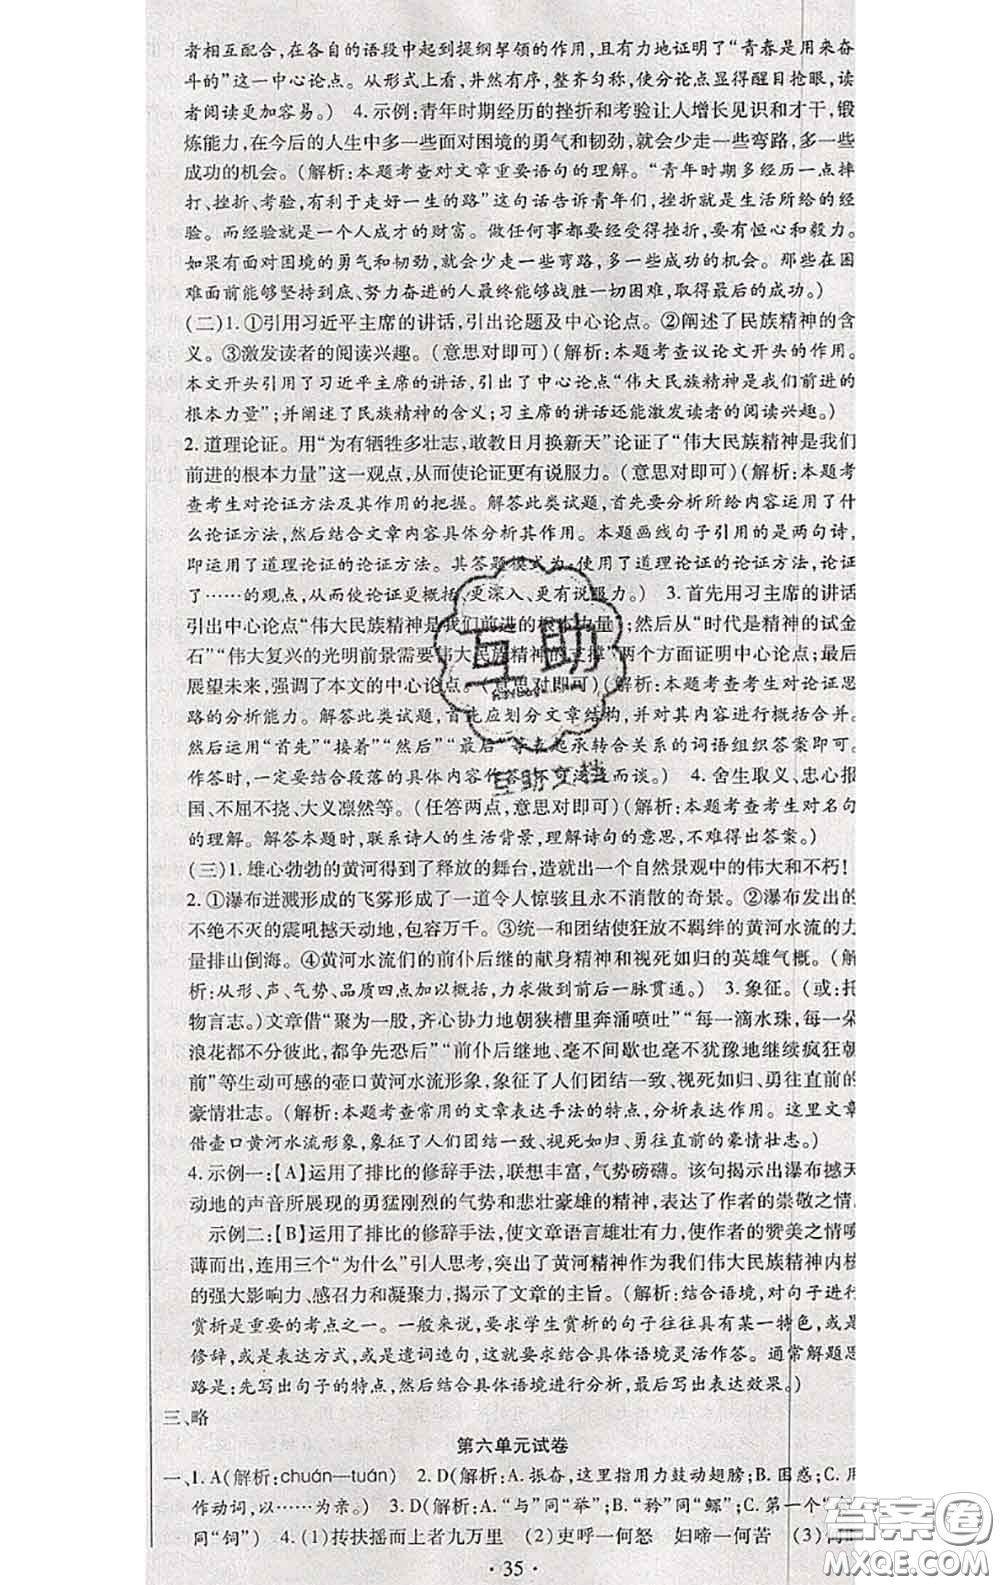 者相互配合,在各自的语段中起到提纲挈领的作用,且有力地证明了“青春是用来奋
斗的”这一中心论点。从形式上看,井然有序,整齐匀称,使分论点显得醒目抢眼,读
者阅读更加容易。) 4. 示例:青年时期经历的挫折和考验让人增长见识和才干,锻
炼能力,在今后的人生中多一些面对困境的勇气和韧劲,就会少走一些弯路,多一些
成功的机会。(解析:本题考查对文章重要语句的理解。“青年时期多经历一点摔
打、挫折、考验,有利于走好一生的路”这句话告诉青年们,挫折就是生活所给的经
验。而经验就是一个人成才的财富。做任何事都要经受得挫折,要有恒心和毅力。
如果有面对困境的勇气和韧劲,就会少走一些弯路,多一些成功的机会。那些在困
难面前能够坚持到底、努力奋进的人最终能够战胜一切困难,取得最后的成功。)
(二)1. ①引用习近平主席的讲话,引出论题及中心论点。②阐述了民族精神的含
义。③激发读者的阅读兴趣。(意思对即可)(解析:本题考查议论文开头的作用。
本文开头引用了习近平主席的讲话,引出了中心论点“伟大民族精神是我们前进的
根本力量”;并阐述了民族精神的含义;习主席的讲话还能激发读者的阅读兴趣。)
2. 道理论证。用“为有牺牲多壮志,敢教日月换新天”论证了“伟大民族精神是我们
前进的根本力量”这一观点,从而使论证更有说服力。(意思对即可)(解析:本题考
查考生对论证方法及其作用的把握。解答此类试题,首先要分析所给内容运用了什
么论证方法,然后结合文章内容具体分析其作用。本题画线句子引用的是两句诗,
即运用了道理论证的论证方法。其答题模式为:使用了道理论证的论证方法,论证
了……的观点,从而使论证更有概括性、更深入、更有说服力。) 3. 首先用习主席的讲话
引出中心论点“伟大民族精神是我们前进的根本力量”;然后从“时代是精神的试金
石”“伟大复兴的光明前景需要伟大民族精神的支撑”两个方面证明中心论点;最后
展望未来,强调了本文的中心论点。(意思对即可)(解析:本题考查考生对论证思
路的分析能力。解答此类试题,首先应划分文章结构,并对其内容进行概括合并。
然后运用“首先”“接着”“然后”“最后”等表起承转合关系的词语组织答案即可。
作答时,一定要结合段落的具体内容作答,不可泛泛而谈。) 4. 舍生取义、忠心报
国、不屈不挠、大义凛然等。(任答两点,意思对即可)(解析:本题考查考生对名句
的理解。解答本题时,联系诗人的生活背景,理解诗句的意思,不难得出答案。)
(三)1. 雄心勃勃的黄河得到了释放的舞台,造就出一个自然景观中的伟大和不朽!
2. ①瀑布迸溅形成的飞雾形成了一道令人惊骇且永不消散的奇景。②瀑布发出的
不绝不灭的震吼撼天动地,包容万千。③统一和团结使狂放不羁绊的黄河水流的力
量排山倒海。④黄河水流们的前仆后继的献身精神和视死如归的英雄气概。(解
析:从形、声、气势、品质四点加以概括,力求做到前后一脉贯通。) 3. 象征。(或:托
物言志。)文章借“聚为一股,齐心协力地朝狭槽里奔涌喷吐”“每一滴水珠,每一朵
浪花都不分彼此,都争先恐后”“前仆后继地、毫不间歇也毫不犹豫地继续疯狂朝
前”等生动可感的壶口黄河水流形象,象征了人们团结一致、视死如归、勇往直前的
豪情壮志。(解析:本题考查常用的文章表达手法的特点,分析表达作用。这里文章
借壶口黄河水流形象,象征了人们团结一致、视死如归、勇往直前的豪情壮志。)
4. 示例一:【A】运用了排比的修辞手法,联想丰富,气势磅礴。该句揭示出瀑布撼天
动地的声音所展现的勇猛刚烈的气势和悲壮豪雄的精神,表达了作者的崇敬之情。
示例二:【B】运用了排比的修辞手法,使文章语言雄壮有力,使作者的赞美之情喷
薄而出,连用三个“为什么”引人思考,突出了黄河精神作为我们伟大民族精神内核
的强大影响力、感召力和凝聚力,揭示了文章的主旨。(解析:结合语境,对句子进行
赏析是重要的考点之一。一般来说,要求学生赏析的句子往往具有某一特色,或
修辞,或是表达方式,或是遣词造句,这就要求结合具体语境灵活作答。通常解题思
路是:先写出句子的特点,然后结合具体语境进行分析,最后写出表达效果。)
三、略
第六单元试卷
一、1. A(解析:chuán—tuán) 2. D(解析:A. 振奋,这里指用力鼓动翅膀;B. 困惑;C. 用
作动词,以……为亲。) 3. D(解析:A. “与”同“举”;B. “矜”同“鳏”;C. 第一个“
同“饲”) 4. (1)抟扶摇而上者九万里 (2)吏呼一何怒 妇啼一何苦 (3)
· 35 ·
互助
互助文档
答案圈
MXQE.COM